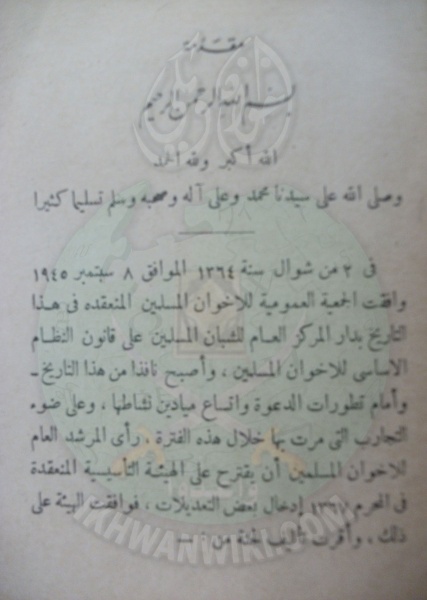 مقدمة
بسم الله الرحمن الرحيم
الله أكبر ولله الحمد
وصلى الله على سيدنا محمد وعلى آله وصحبه وسلم تسليما كثيرا
فى ٢ من شوال سنة ١٣٦٤ الموافق ٨ سبتمبر ١٩٤٥
وافقت الجمعية العمومية للاخوان المسلمين المنعقده فى هذا
التاريخ بدار المركز العام للشبان المسلمين على قانون النظام
الاساسى للاخوان المسلمين ، وأصبح نافذا من هذا التاريخ ـ
وأمام تطورات الدعوة واتساع ميادين نشاطها ، وعلى ضوء
التجارب التى مرت بها خلال هذه الفترة ، رأى المرشد العام
للاخوان المسلمين أن يقترح على الهيئة التأسيسية المنعقدة
فى المحرم ١٣٦٧ إدخال بعض التعديلات ، فوافقت الهيئة على
ذلك ، وأقرت تأليف لجنة من : ـــ
IKHWANWIKI.COM